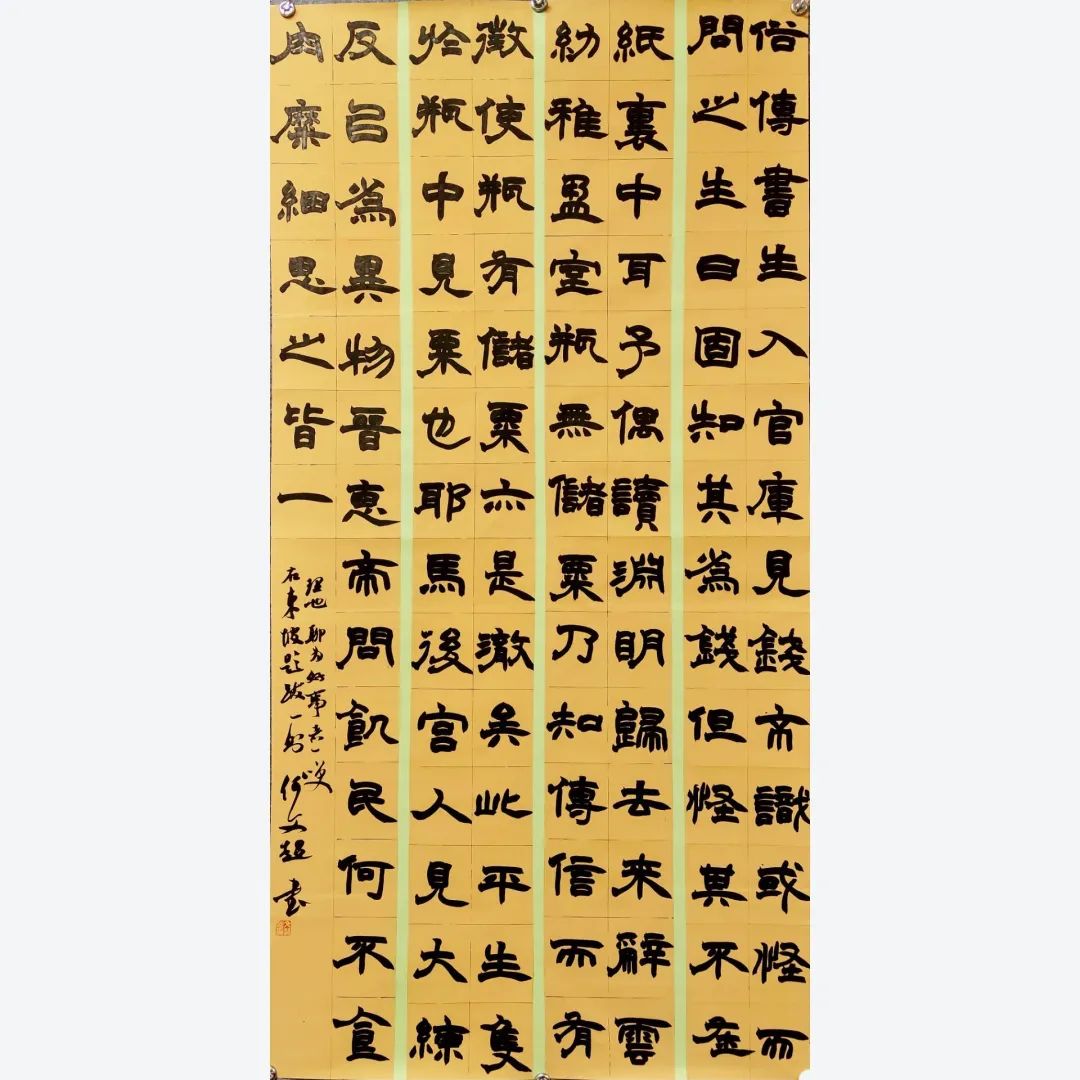 俗傳書生入官庫見錢不識或怪而
問之生曰固知其為錢但怪其不在
紙裏中耳予偶讀淵明歸去來辭雲
幼稚盈室瓶無儲粟乃知傳信而有
徵使瓶有儲粟亦是澈矣此平生隻
於瓶中見粟也耶馬後宮人見大練
反以為異物晉惠帝問飢民何不食
肉糜細思之皆一
理也聊為好事者一笑
右東坡題跋一則何文超書